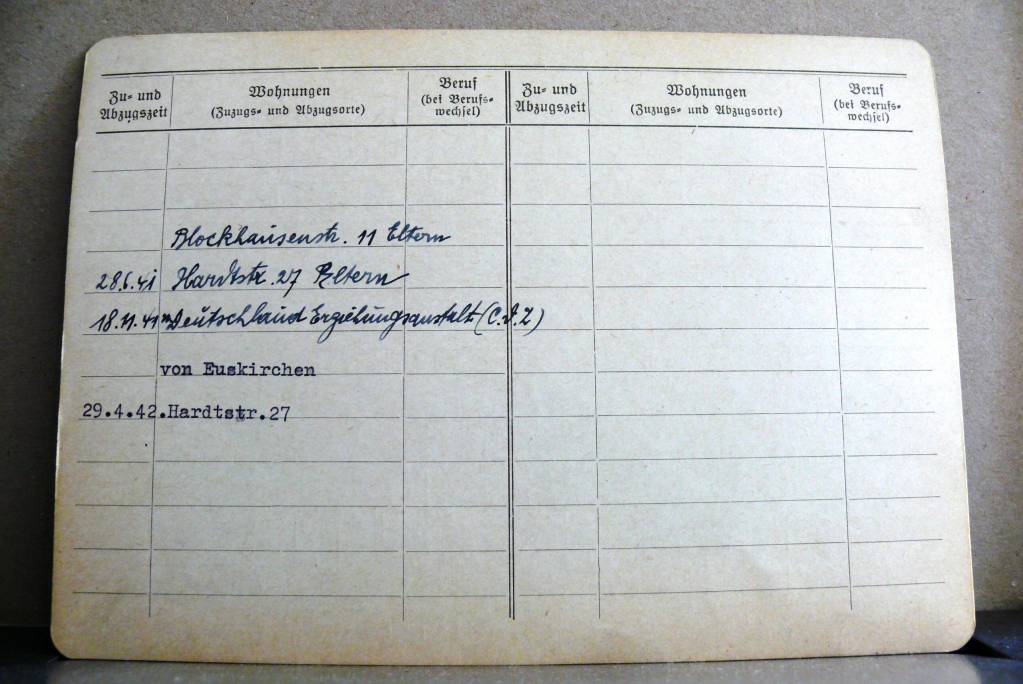 Zu- und Abzugszeit
Wohnungen
(Zuzugs- und Abzugsorte)
Beruf
(bei Berufs-
wechsel)
Zu- und Abzugszeit
Wohnungen
(Zuzugs- und Abzugsorte)
Beruf
(bei Berufs-
wechsel)
Blockhausenstr. 11 Eltern
28.6.41 Hardtstr. 27 Eltern
18.11.41 Deutschland Erziehungsanstalt
von Euskirchen
29.4.42. Hardtstr.27